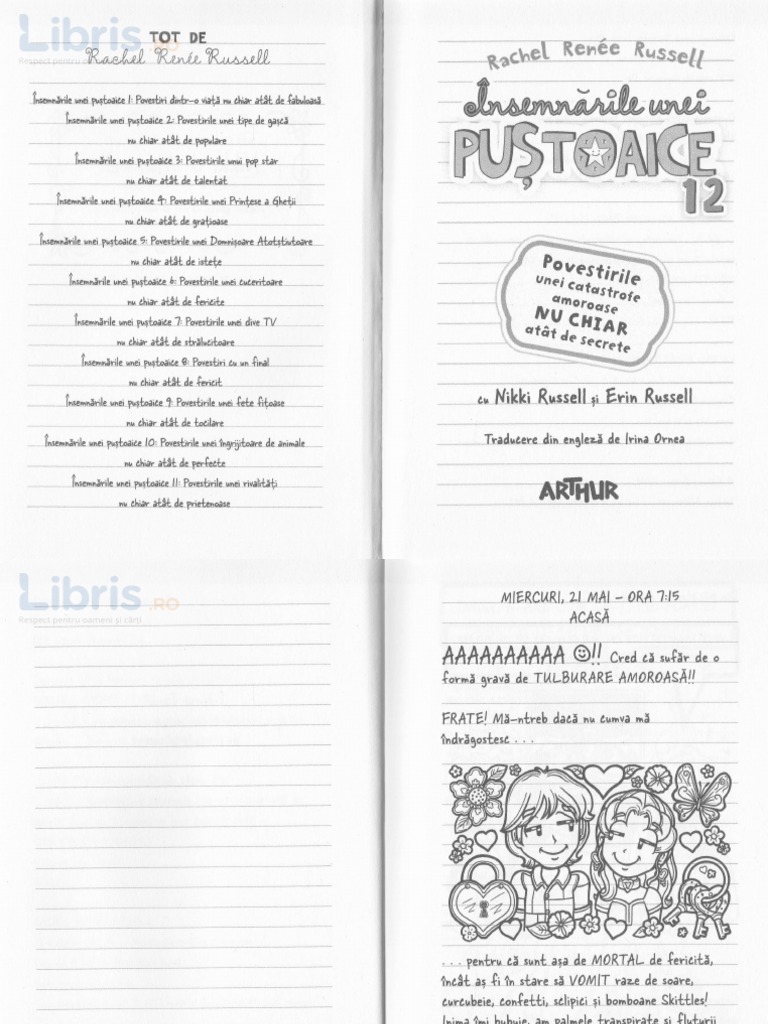 Libris
.RO
Respect pentru oameni și cărți
TOT DE
Rachel Renée Russell
Însemnările unei puștoaice 1: Povestiri dintr-o viață nu chiar atât de fabuloasă
Însemnările unei puștoaice 2: Povestirile unei tipe de gașcă
nu chiar atât de populare
Însemnările unei puștoaice 3: Povestirile unui pop star
nu chiar atât de talentat
Însemnările unei puștoaice 4: Povestirile unei Prințese a Gheții
nu chiar atât de grațioase
Însemnările unei puștoaice 5: Povestirile unei Domnișoare Atotștiutoare
nu chiar atât de istețe
Însemnările unei puștoaice 6: Povestirile unei cuceritoare
nu chiar atât de fericite
Însemnările unei puștoaice 7: Povestirile unei dive TV
nu chiar atât de strălucitoare
Însemnările unei puștoaice 8: Povestiri cu un final
nu chiar atât de fericit
Însemnările unei puștoaice 9: Povestirile unei fete fițoase
nu chiar atât de tocilare
Însemnările unei puștoaice 10: Povestirile unei îngrijitoare de animale
nu chiar atât de perfecte
Însemnările unei puștoaice 11: Povestirile unei rivalități
nu chiar atât de prietenoase
Rachel Renée Russell
Însemnările unei
PUȘTOAICE
12
Povestirile
unei catastrofe
amoroase
NU CHIAR
atât de secrete
cu Nikki Russell și Erin Russell
Traducere din engleză de Irina Ornea
ARTHUR
Libris
.RO
Respect pentru oameni și cărți
MIERCURI, 21 MAI – ORA 7:15
ACASĂ
AAAAAAAAAA ☺!! Cred că sufăr de o
formă gravă de TULBURARE AMOROASĂ!!
FRATE! Mă-ntreb dacă nu cumva mă
îndrăgostesc . . .
. . . pentru că sunt așa de MORTAL de fericită,
încât aș fi în stare să VOMIT raze de soare,
curcubeie, confetti, sclipici și bomboane Skittles!
Inima îmi bubuie, am palmele transpirate și fluturii